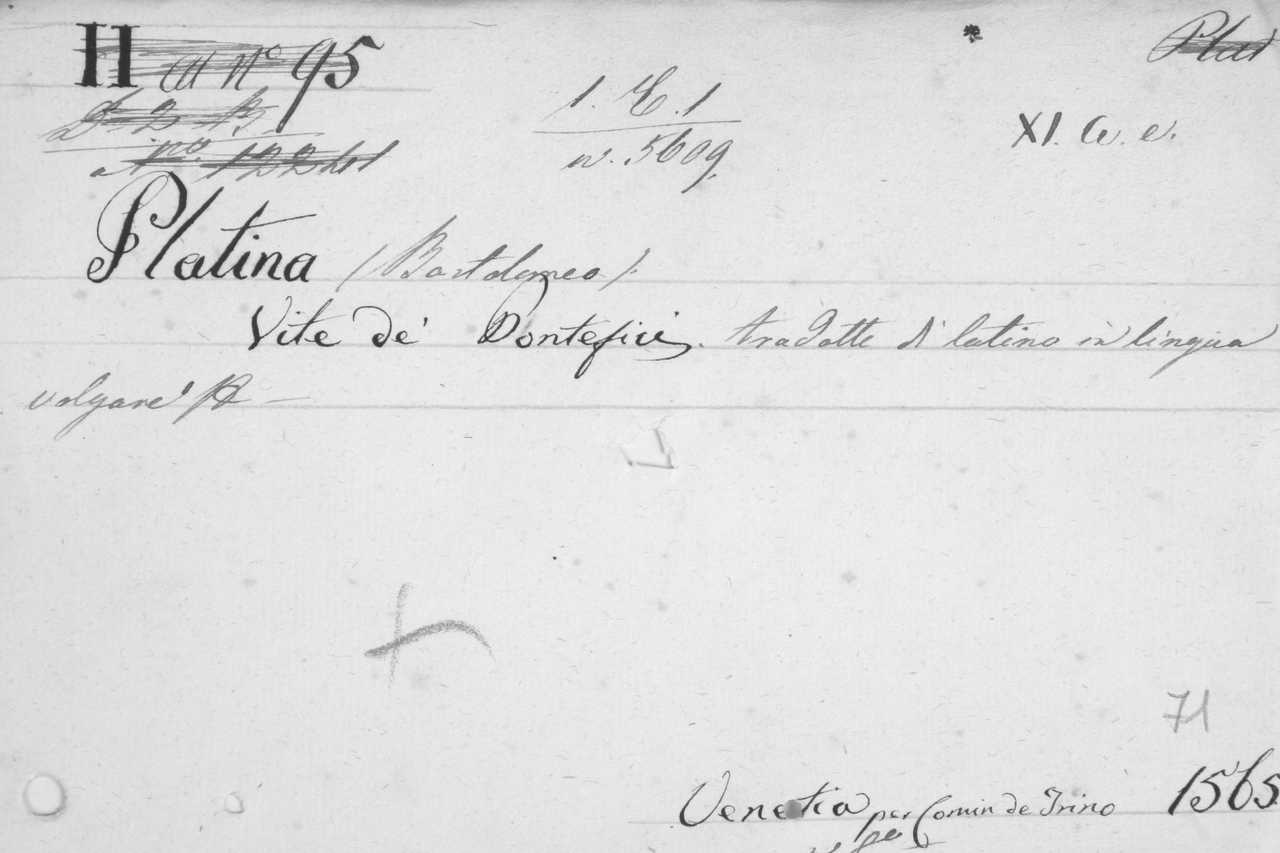 H N° 95
Plat
1. E. 1
n. 5609.
XI. a. e.
Platina (Bartolomeo).
Vite de' Pontefici. tradotte di latino in lingua
volgare
71
Venetia per Comin de Trino 1565